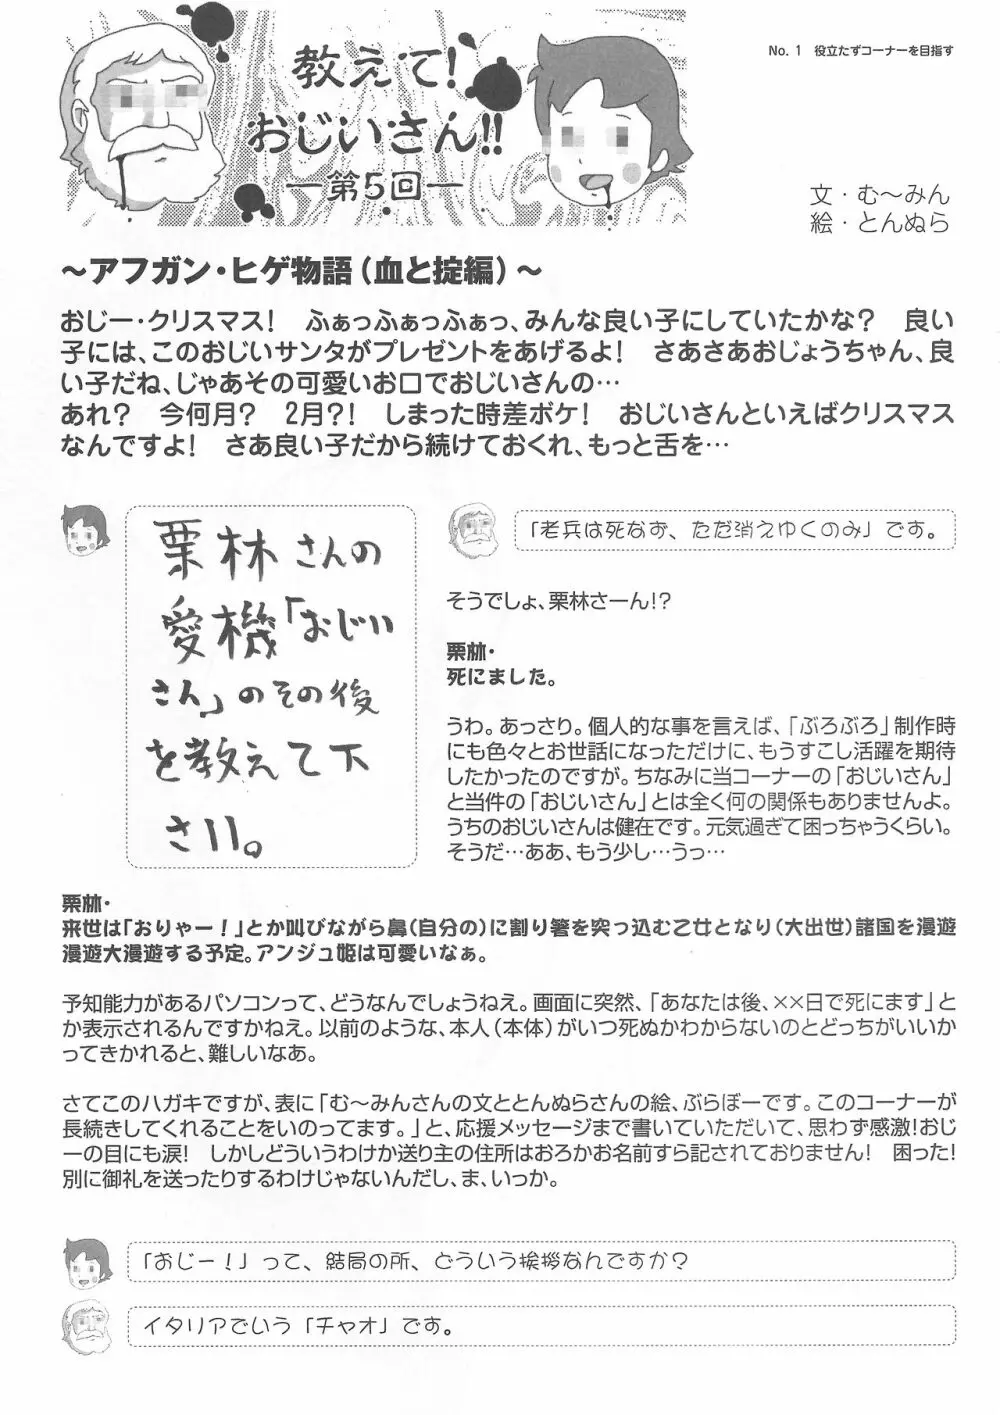 No. 1　役立たずコーナーを目指す
教えて!
おじいさん!!
―第5回―
文・む〜みん
絵・とんぬら
〜アフガン・ヒゲ物語(血と掟編)〜
おじー・クリスマス!　ふぁっふぁっふぁっ、みんな良い子にしていたかな?　良い
子には、このおじいサンタがプレゼントをあげるよ!　さあさあおじょうちゃん、良
い子だね、じゃあその可愛いお口でおじいさんの…
あれ?　今何月?　2月?!　しまった時差ボケ!　おじいさんといえばクリスマス
なんですよ!　さあ良い子だから続けておくれ、もっと舌を…
栗林さんの
愛機「おじい
さん」のその後
を教えて下
さい。
「老兵は死なず、ただ消えゆくのみ」です。
そうでしょ、栗林さーん!?
栗林・
死にました。
うわ。あっさり。個人的な事を言えば、「ぶろぶろ」制作時
にも色々とお世話になっただけに、もうすこし活躍を期待
したかったのですが。ちなみに当コーナーの「おじいさん」
と当件の「おじいさん」とは全く何の関係もありませんよ。
うちのおじいさんは健在です。元気過ぎて困っちゃうくらい。
そうだ…ああ、もう少し…うっ…
栗林・
来世は「おりゃー!」とか叫びながら鼻(自分の)に割り箸を突っ込む乙女となり(大出世)諸国を漫遊
漫遊大漫遊する予定。アンジュ姫は可愛いなぁ。
予知能力があるパソコンって、どうなんでしょうねえ。画面に突然、「あなたは後、××日で死にます」と
か表示されるんですかねえ。以前のような、本人(本体)がいつ死ぬかわからないのとどっちがいいか
ってきかれると、難しいなあ。
さてこのハガキですが、表に「む〜みんさんの文ととんぬらさんの絵、ぶらぼーです。このコーナーが
長続きしてくれることをいのってます。」と、応援メッセージまで書いていただいて、思わず感激!おじ
ーの目にも涙!　しかしどういうわけか送り主の住所はおろかお名前すら記されておりません!　困った!
別に御礼を送ったりするわけじゃないんだし、ま、いっか。
「おじー!」って、結局の所、どういう挨拶なんですか?
イタリアでいう「チャオ」です。